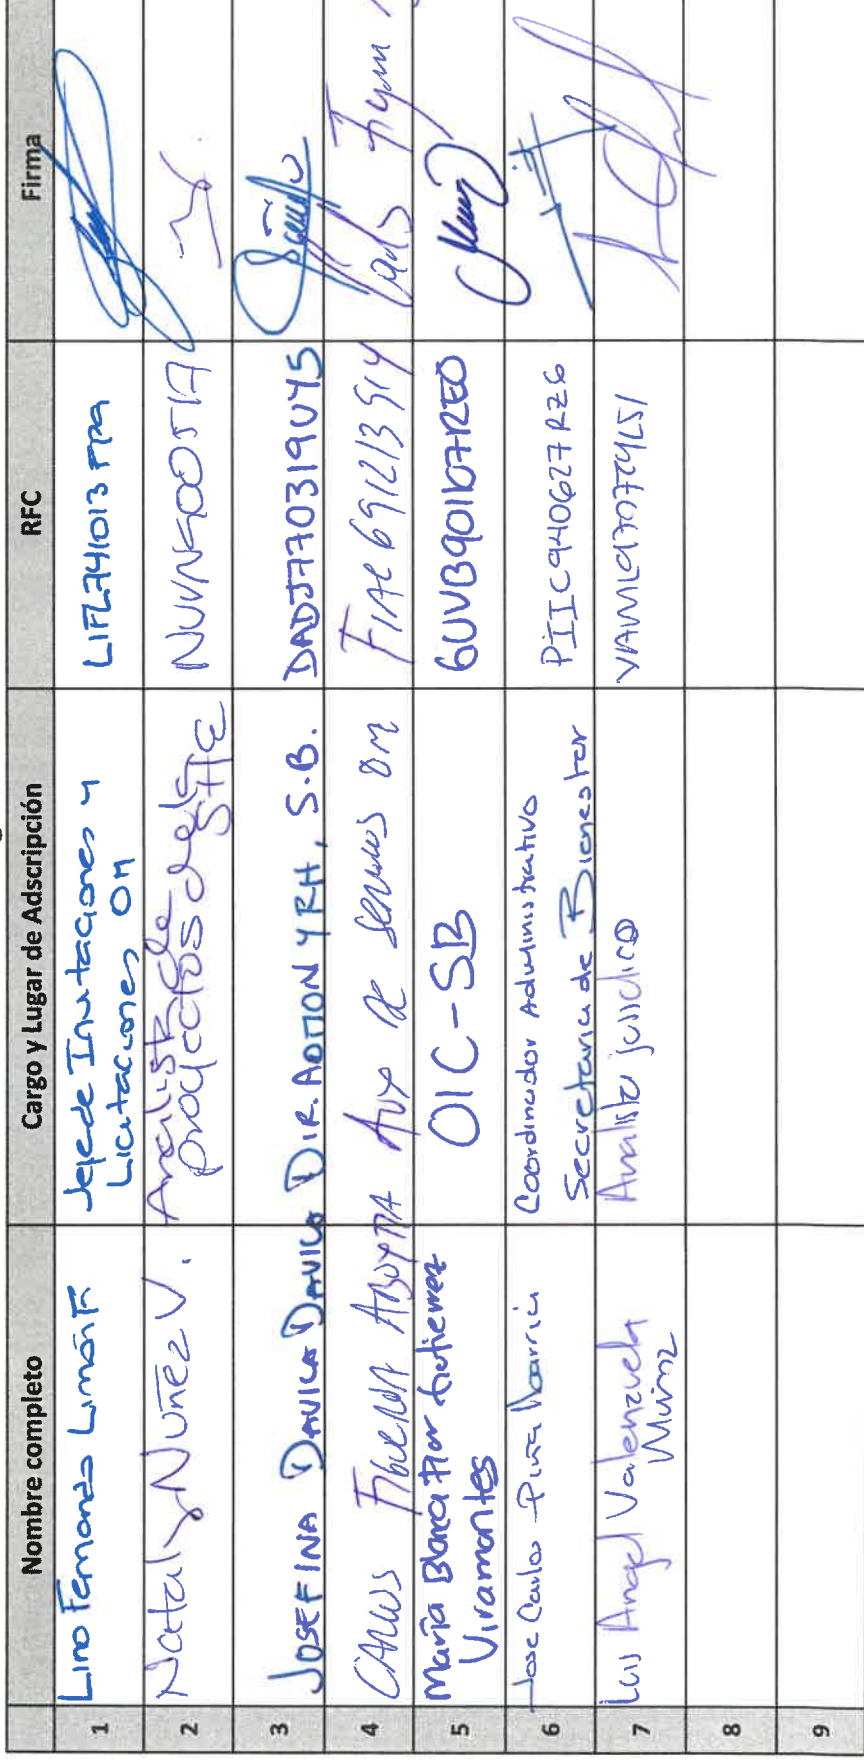 Nombre completo Cargo y Lugar de Adscripción RFC Firma
1 Lino Fernando Limón F Jefe de Invitaciones y Licitaciones OM LIFL741013FPA
2 Nataly Nuñez V. Analista de proyectos de la
3 JOSEFINA DAVILA DAVILA DIR. ADMON Y RH, S.B. DADJ770319U45
4 CARLOS FIGUEROA Aux DE SERVICIOS OM
5 Maria Blanca Flor Gutierrez Viramontes OIC-SB GUVB901107RE0
6 Jose Carlos Piña Ibarria Coordinador Administrativo Secretaria de Bienestar PIIC940627RZ6
7 Luis Angel Valenzuela Muñoz Analista juridico
8
9